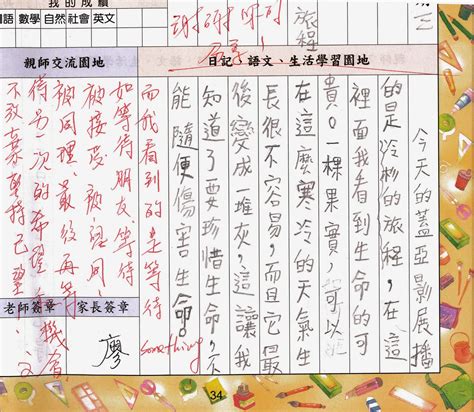 我的成績
語 數學 自然 社會 英文
三
謝謝你的
分享!
旅程
親師交流園地
日記、語文、生活學習園地
今天的蓋亞影展播
的是冷杉的旅程,在這
裡面我看到生命的可
貴。一棵果實,可以
在這麼寒冷的天氣生
長很不容易,而且它
後變成一堆灰,這讓我
知道了要珍惜生命,不
能隨便傷害生命。
而我看到的是等待
something
如等待朋友、等待
被接受、被認同、
被同理、最後再等
待另一次的希望
機會
不放棄堅持
老師簽章
家長簽章
廖
34